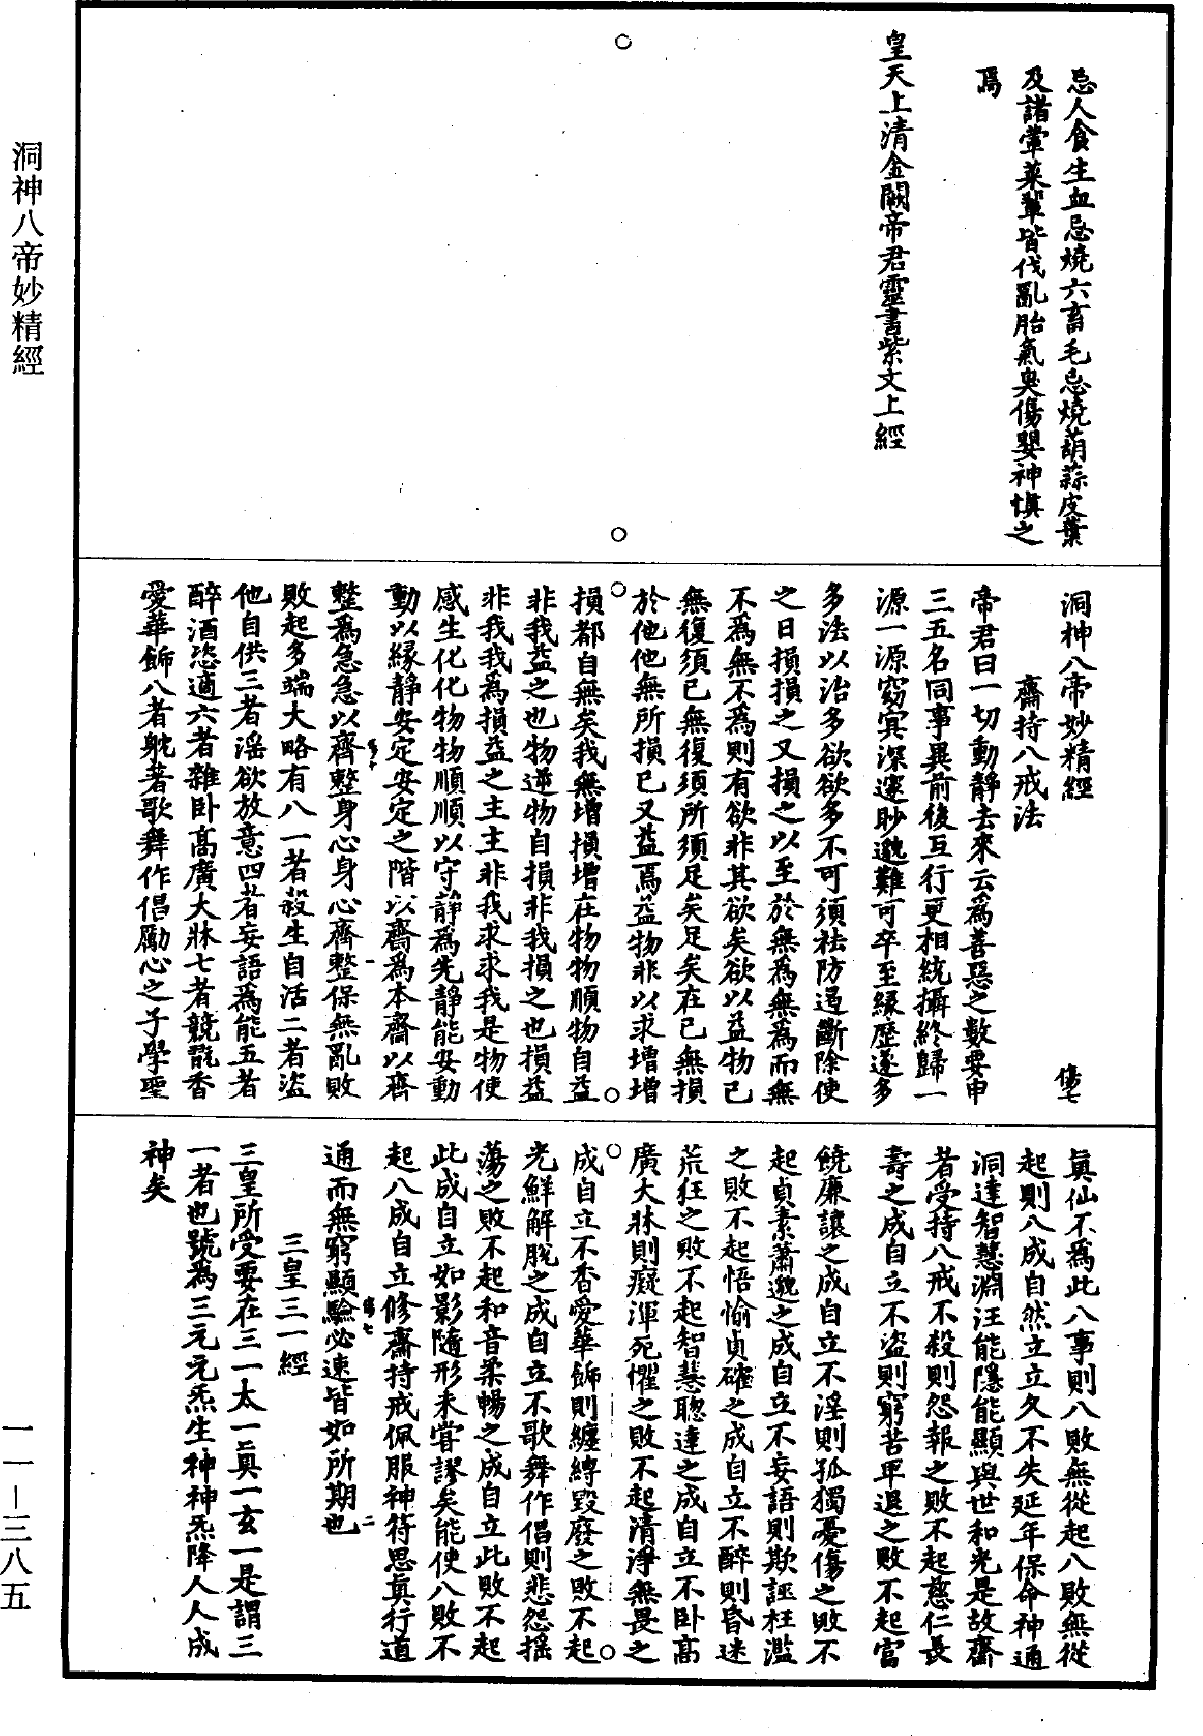 忌人食生血忌燒六畜毛忌燒葫蒜皮葉
及諸葷菜輩皆伐亂胎氣臭傷嬰神慎之
焉
皇天上清金闕帝君靈書紫文上經
洞神八帝妙精經
齋持八戒法
帝君曰一切動靜去來云為善惡之數要申
三五名同事異前後互行更相統攝終歸一
源一源窈冥深邃眇邈難可卒至緣歷遂多
多法以治多欲欲多不可須祛防遏斷除使
之日損損之又損之以至於無為無為而無
不為無不為則有欲非其欲矣欲以益物已
無復須已無復須所須足矣足矣在已無損
於他他無所損已又益焉益物非以求增增
損都自無矣我無增損增在物物順物自益
非我益之也物逆物自損非我損之也損益
非我我為損益之主主非我求求我是物使
感生化化物物順順以守靜為先靜能安動
動以緣靜安定安定之階以齋為本齋以齊
整為急急以齊整身心身心齊整保無亂敗
敗起多端大略有八一者殺生自活二者盜
他自供三者淫欲放意四者妄語為能五者
醉酒恣適六者雜卧高廣大牀七者競翫香
愛華飾八者躭著歌舞作倡勵心之子學聖
真仙不為此八事則八敗無從起八敗無從
起則八成自然立立久不失延年保命神通
洞達智慧淵汪能隱能顯與世和光是故齋
者受持八戒不殺則怨報之敗不起慈仁長
壽之成自立不盜則窮苦卑退之敗不起富
饒廉讓之成自立不淫則孤獨憂傷之敗不
起貞素蕭邈之成自立不妄語則欺誣枉濫
之敗不起悟愉貞確之成自立不醉則昏迷
荒狂之敗不起智慧聰達之成自立不卧高
廣大牀則癡渾死懼之敗不起清淨無畏之
成自立不香愛華飾則纏縛毀廢之敗不起
光鮮解脫之成自立不歌舞作倡則悲怨搖
蕩之敗不起和音柔暢之成自立此敗不起
此成自立如影隨形未嘗謬矣能使八敗不
起八成自立修齋持戒佩服神符思真行道
通而無窮顯驗必速皆如所期也
三皇三一經
三皇所受要在三一太一真一玄一是謂三
一者也號為三元元炁生神神炁降人人成
神矣
洞神八帝妙精經
一一－三八五